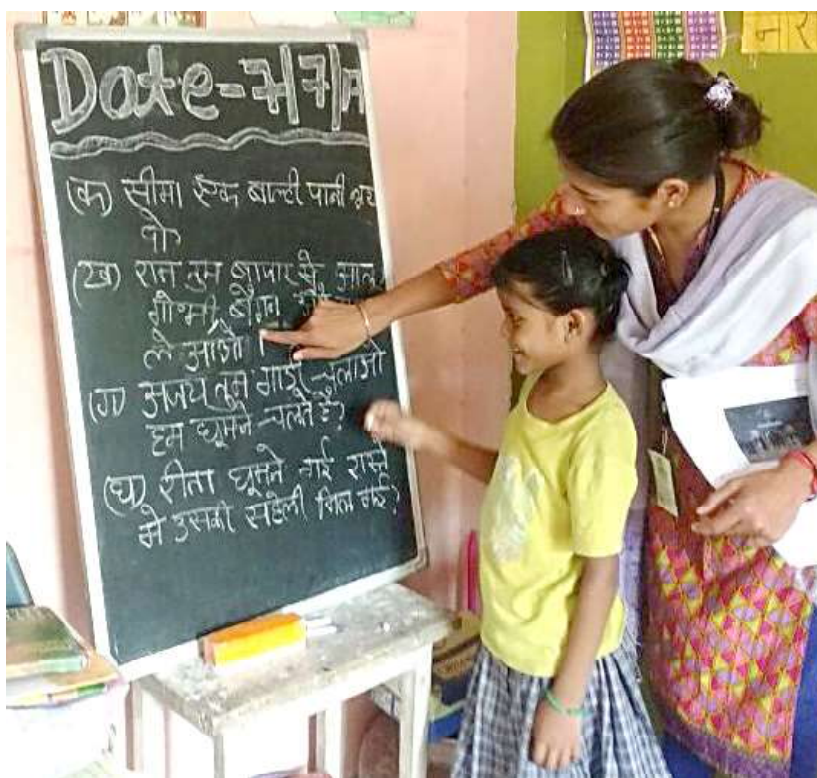 नार
Date-7/7/17
(क) सीमा एक बाल्टी पानी भर
दो
(ख) राम तुम बाजार से आलू
गोभी बैंगन
ले आओ ।
(ग) अजय तुम गाड़ी चलाओ
हम घूमने चलते है?
(घ) रीता घूमने गई रास्ते
मे उसकी सहेली मिल गई?